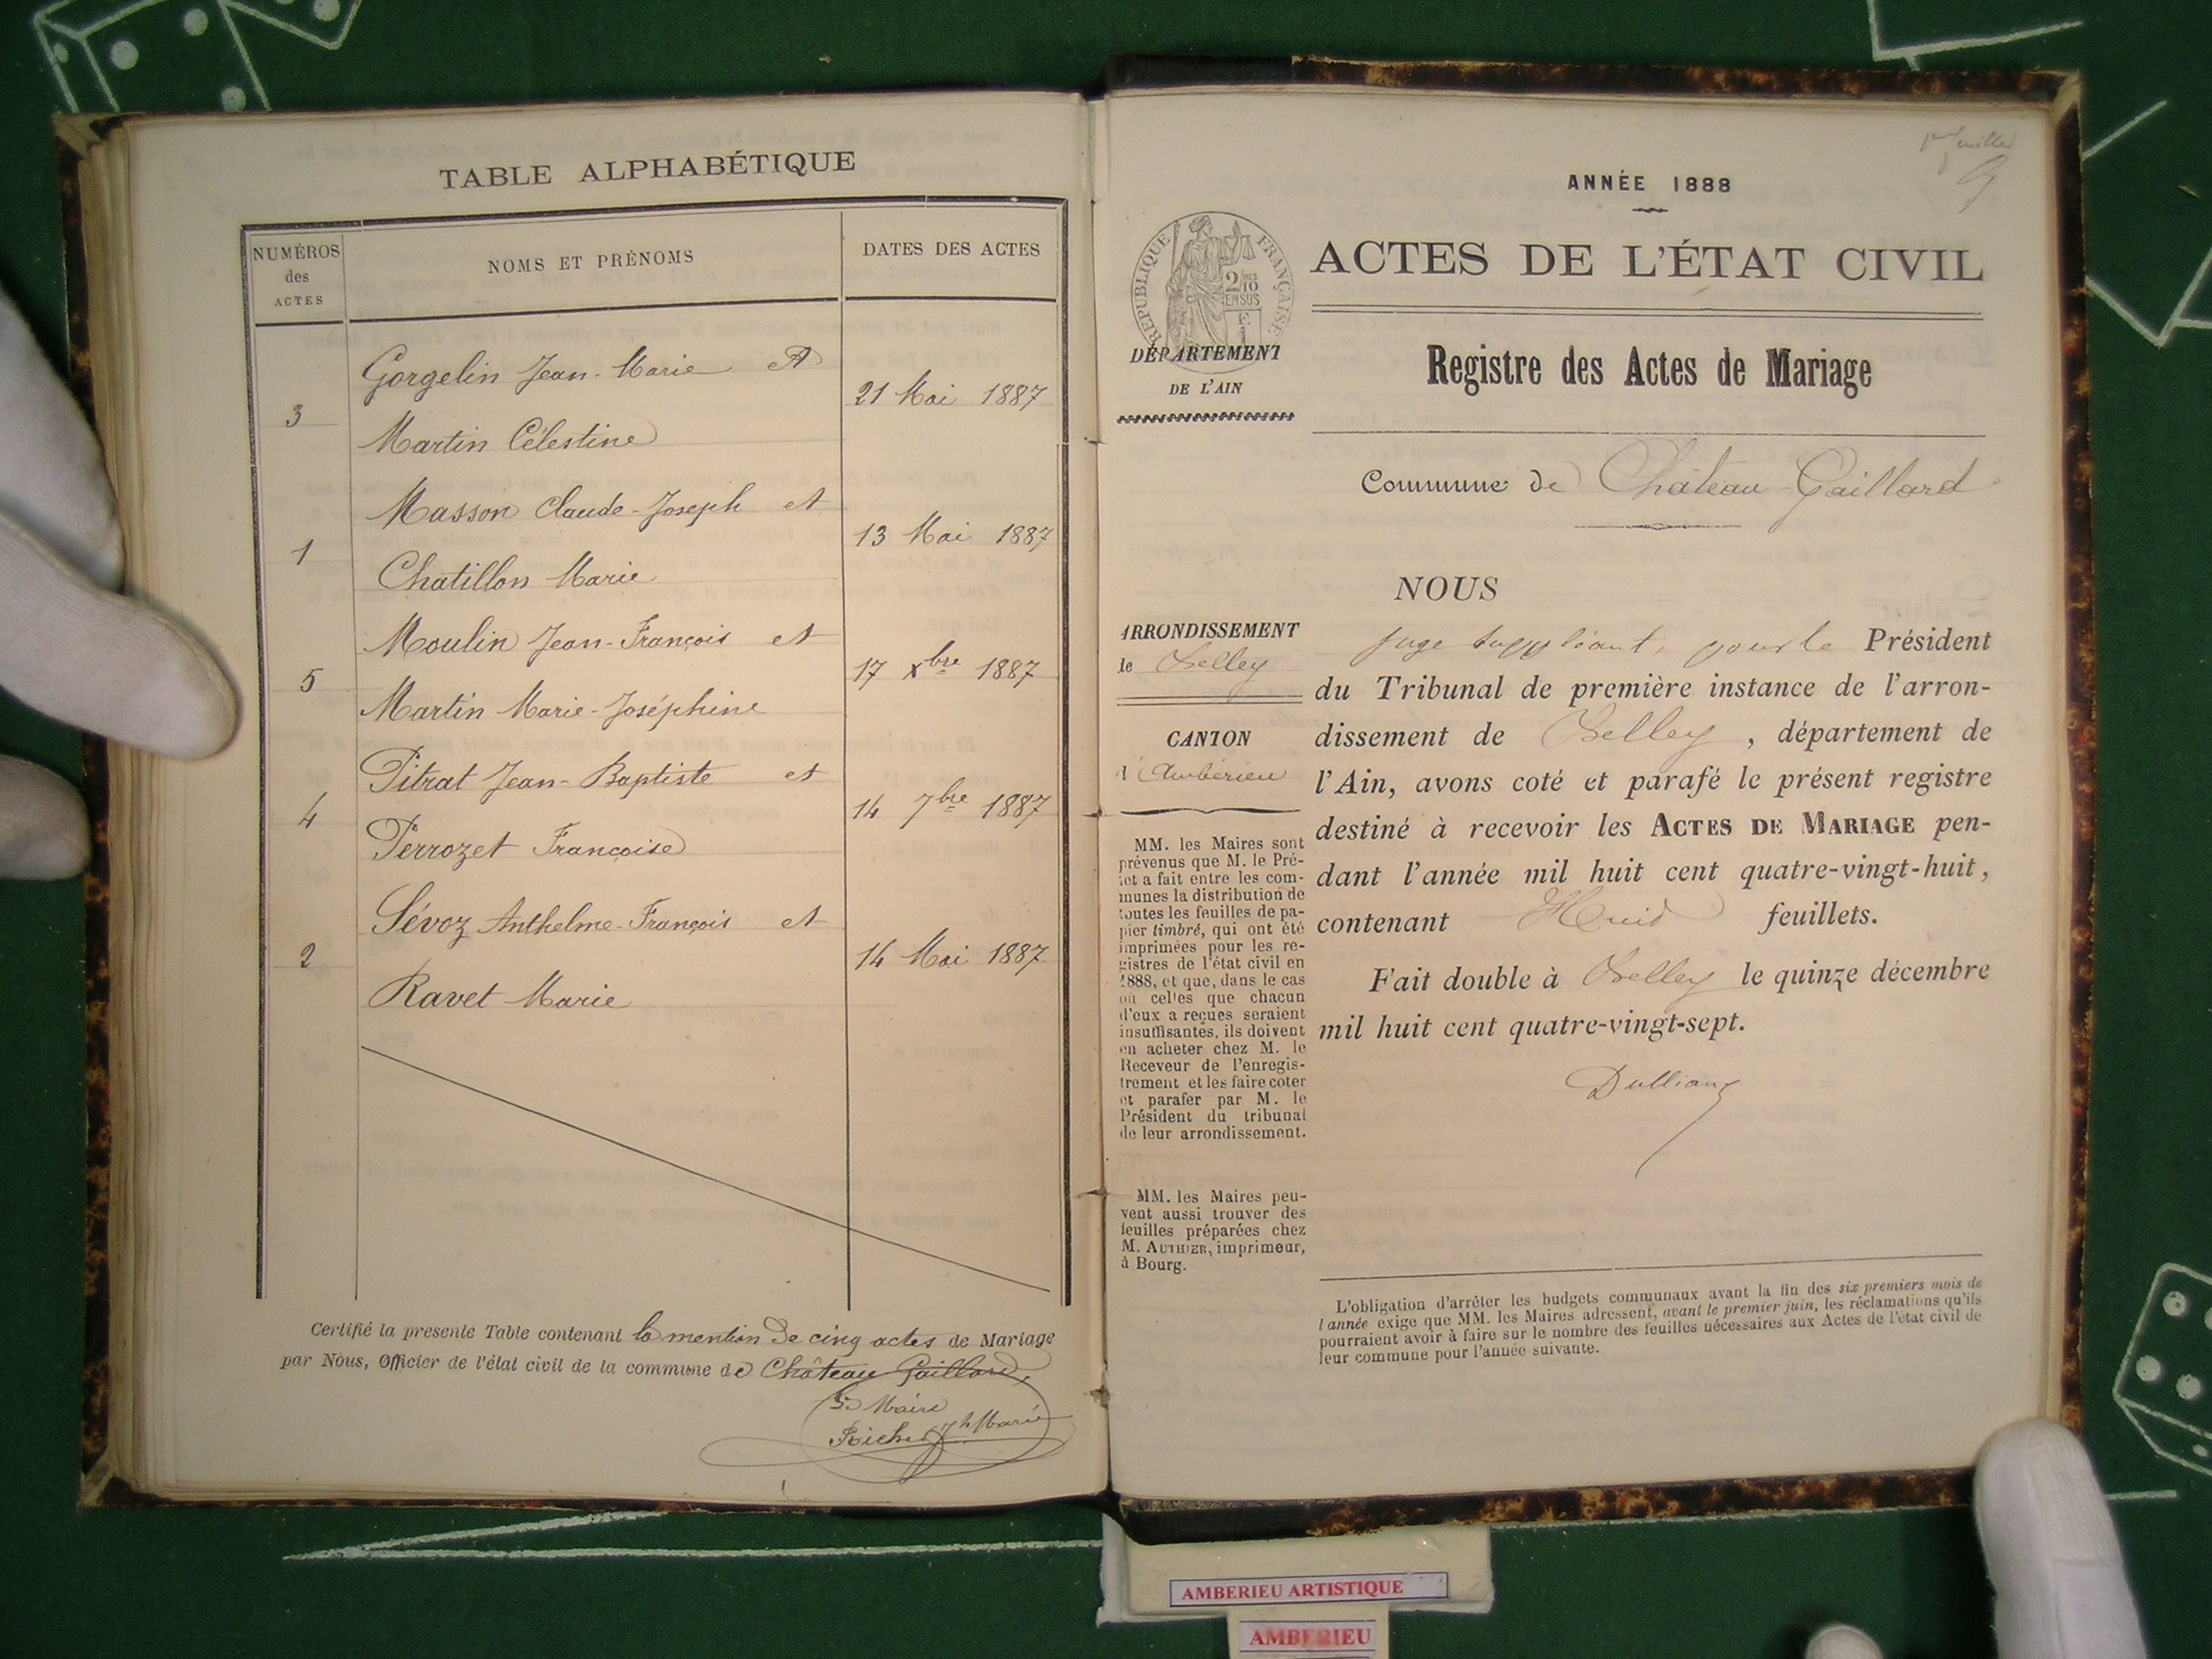 TABLE ALPHABÉTIQUE
NUMÉROS
des
ACTES
NOMS ET PRÉNOMS
DATES DES ACTES
Gorgelin Jean-Marie et
3
21 Mai 1887
Martin Célestine
Masson Claude-Joseph et
1
13 Mai 1887
Chatillon Marie
Moulin Jean-François et
5
17 xbre 1887
Martin Marie-Joséphine
Pitrat Jean-Baptiste et
4
14 7bre 1887
Perrozet Françoise
Sévoz Anthelme-François et
2
14 Mai 1887
Ravet Marie
Certifié la presente Table contenant la mention de cinq actes de Mariage
par Nous, Officier de l'état civil de la commune de Château Gaillard,
Le Maire
Jh Marie
1er feuillet
ANNÉE 1888
RÉPUBLIQUE FRANÇAISE
2 10
EN SUS
E.
1
ACTES DE L'ÉTAT CIVIL
DÉPARTEMENT
DE L'AIN
Registre des Actes de Mariage
Commune de Château-Gaillard
NOUS
ARRONDISSEMENT
de Belley
CANTON
d'Ambérieu
MM. les Maires sont
prévenus que M. le Pré-
fet a fait entre les com-
munes la distribution de
toutes les feuilles de pa-
pier timbré, qui ont été
imprimées pour les re-
gistres de l'état civil en
1888, et que, dans le cas
où celles que chacun
d'eux a reçues seraient
insuffisantes, ils doivent
en acheter chez M. le
Receveur de l'enregis-
trement et les faire coter
et parafer par M. le
Président du tribunal
de leur arrondissement.
MM. les Maires peu-
vent aussi trouver des
feuilles préparées chez
M. AUTHIER, imprimeur,
à Bourg.
Juge suppléant, pour le Président
du Tribunal de première instance de l'arron-
dissement de Belley, département de
l'Ain, avons coté et parafé le présent registre
destiné à recevoir les ACTES DE MARIAGE pen-
dant l'année mil huit cent quatre-vingt-huit,
contenant Huit feuillets.
Fait double à Belley le quinze décembre
mil huit cent quatre-vingt-sept.
L'obligation d'arrêter les budgets communaux avant la fin des six premiers mois de
l'année exige que MM. les Maires adressent, avant le premier juin, les réclamations qu'ils
pourraient avoir à faire sur le nombre des feuilles nécessaires aux Actes de l'état civil de
leur commune pour l'année suivante.
AMBERIEU ARTISTIQUE
AMBERIEU